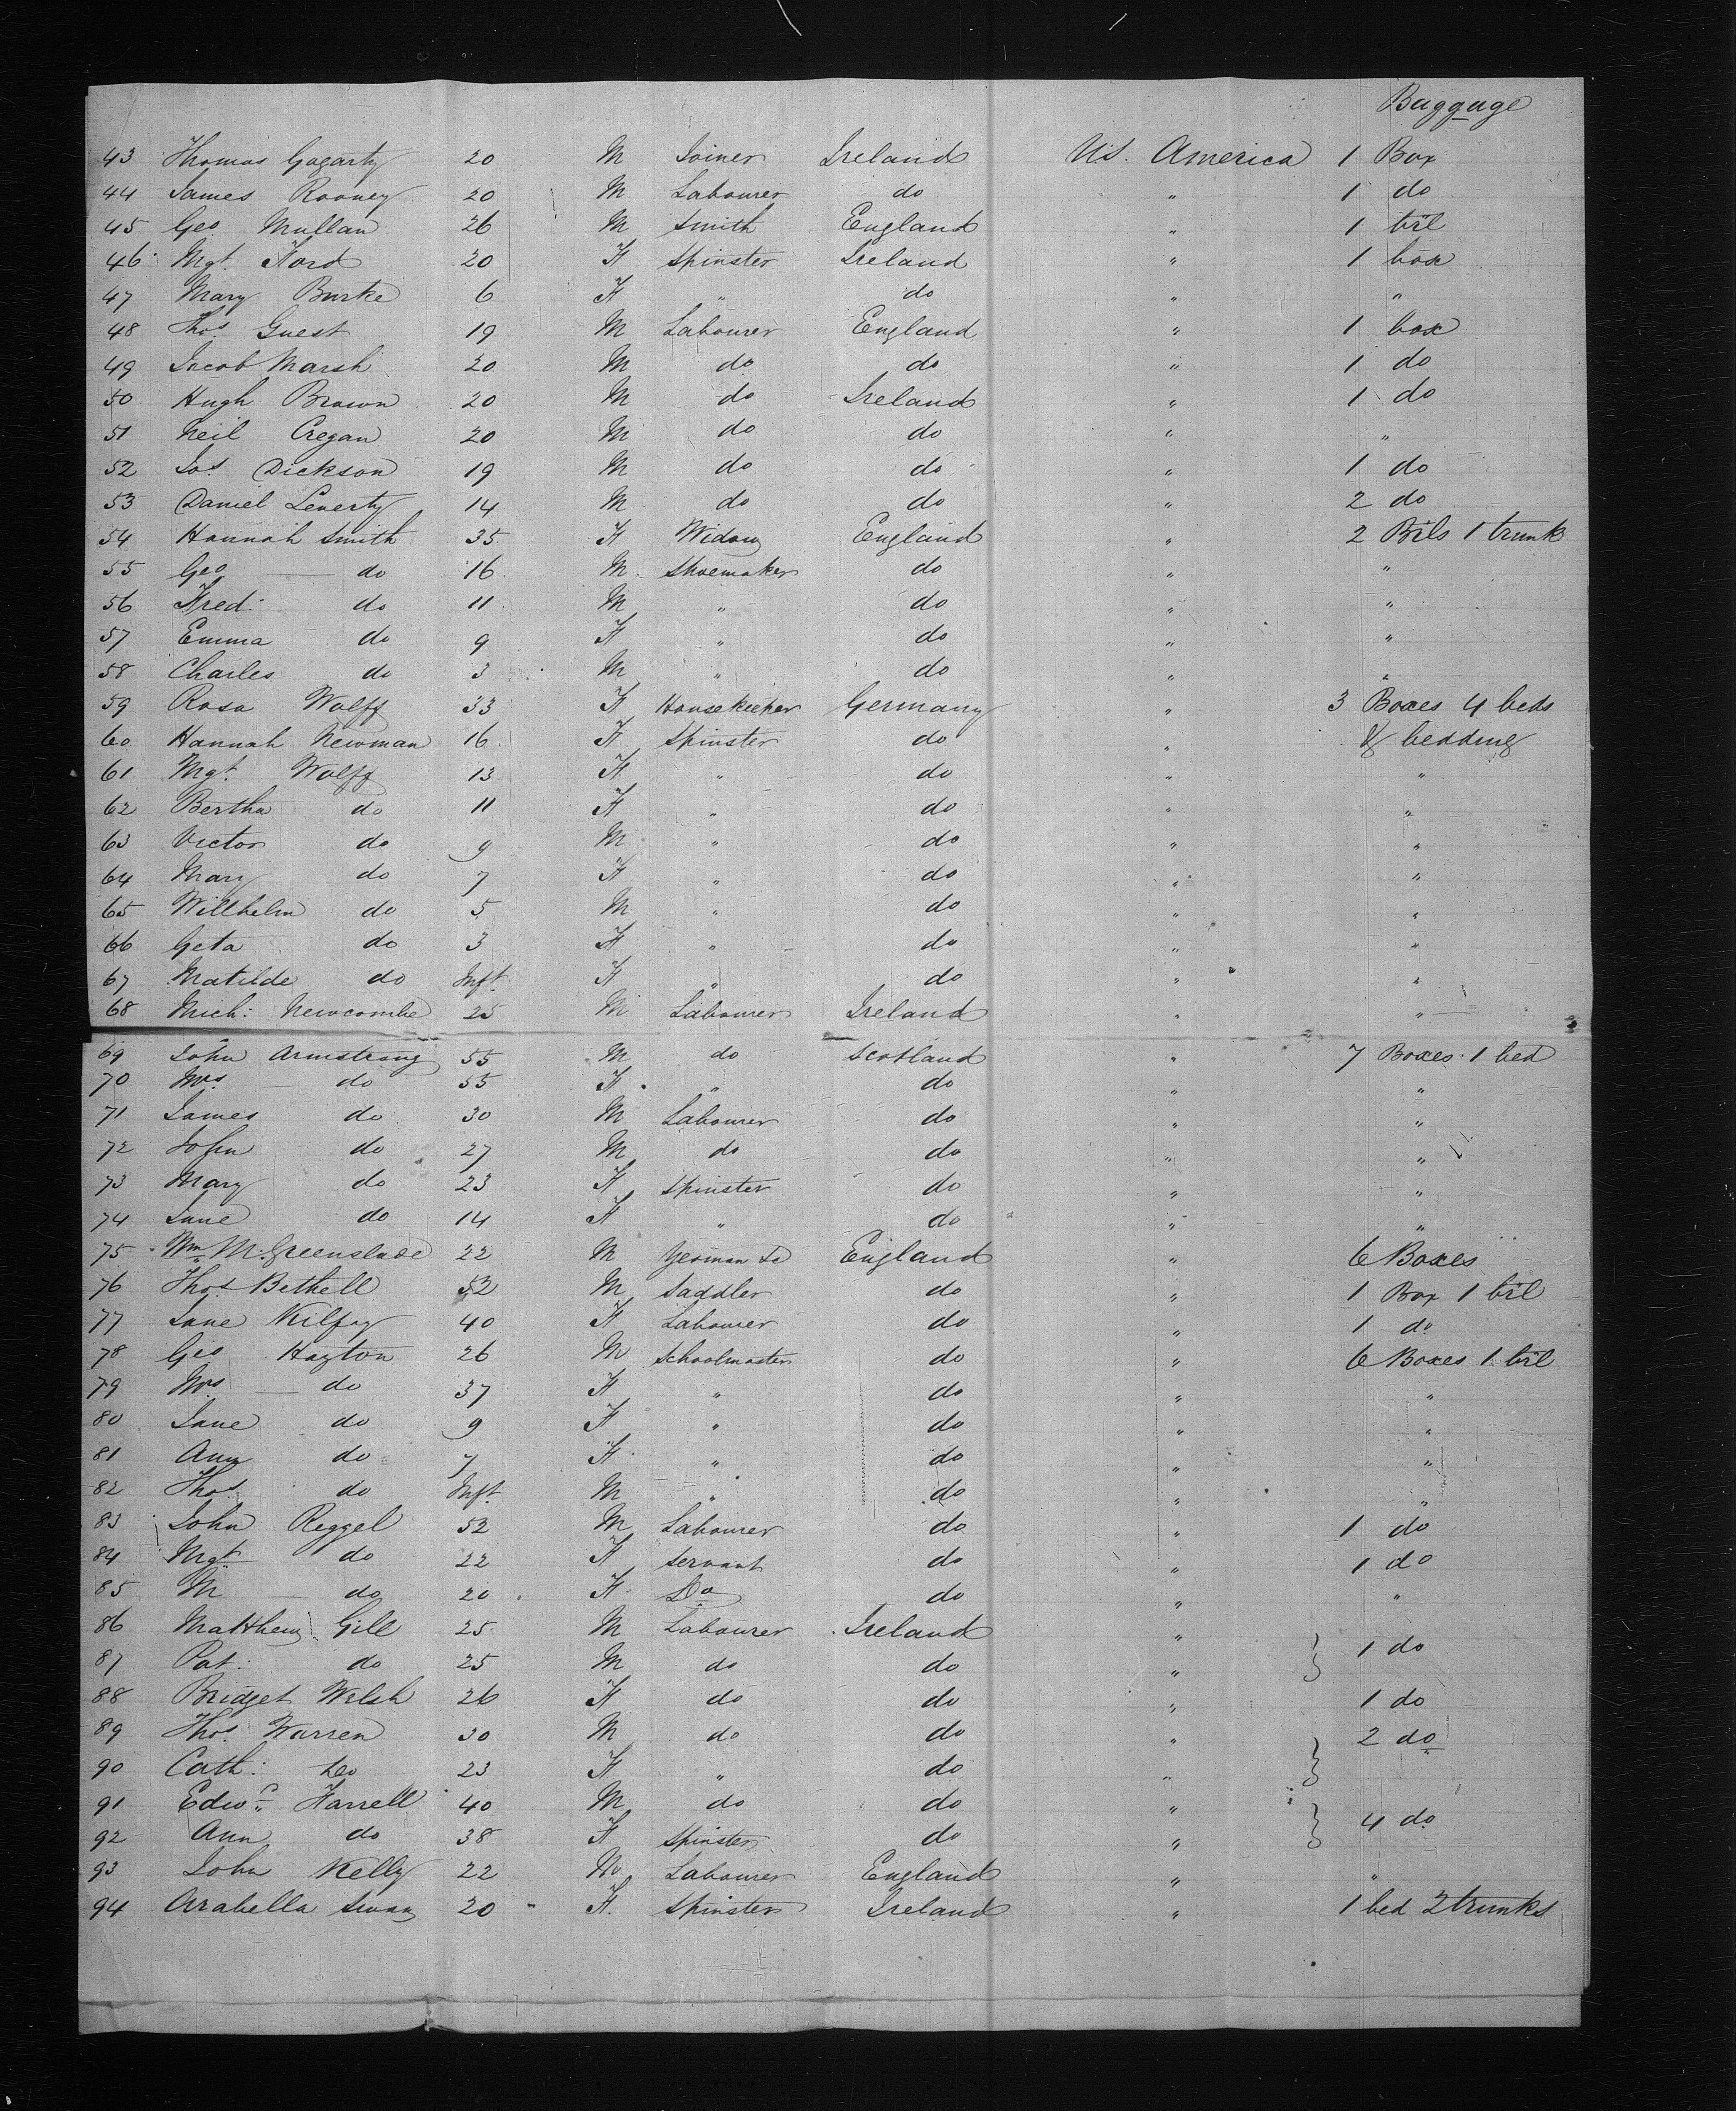 Baggage
43 Thomas Gogarty 20 M Joiner Ireland U.S. America 1 Box
44 James Rooney 20 M Labourer do " 1 do
45 Geo Mullan 26 M Smith England " 1 brl
46 Mgt. Ford 20 F Spinster Ireland " 1 box
47 Mary Burke 6 F " do " "
48 Thos Guest 19 M Labourer England " 1 box
49 Jacob Marsh 20 M do do " 1 do
50 Hugh Brown 20 M do Ireland " 1 do
51 Neil Cregan 20 M do do " "
52 Jos Dickson 19 M do do " 1 do
53 Daniel Leverty 14 M do do " 2 do
54 Hannah Smith 35 F Widow England " 2 Brls 1 trunk
55 Geo do 16 M Shoemaker do " "
56 Fred: do 11 M " do " "
57 Emma do 9 F " do " "
58 Charles do 3 M " do " "
59 Rosa Wolff 33 F Housekeeper Germany " 3 Boxes 4 beds
60 Hannah Newman 16 F Spinster do " & bedding
61 Mgt. Wolff 13 F " do " "
62 Bertha do 11 F " do " "
63 Victor do 9 M " do " "
64 Mary do 7 F " do " "
65 Willhelm do 5 M " do " "
66 Geta do 3 F " do " "
67 Matilde do Inft. F " do " "
68 Mich: Newcombe 25 M Labourer Ireland " "
69 John Armstrong 55 M do Scotland " 7 Boxes 1 bed
70 Mrs. do 55 F " do " "
71 James do 30 M Labourer do " "
72 John do 27 M do do " "
73 Mary do 23 F Spinster do " "
74 Jane do 14 F " do " "
75 Wm M. Greenslade 22 M Yeoman England " 6 Boxes
76 Thos Bethell 52 M Saddler do " 1 Box 1 brl
77 Jane Kilfoy 40 F Labourer do " 1 do
78 Geo Hayton 26 M Schoolmaster do " 6 Boxes 1 brl
79 Mrs do 37 F " do " "
80 Jane do 9 F " do " "
81 Ann do 7 F " do " "
82 Thos do Inft. M " do " "
83 John Reggel 52 M Labourer do " 1 do
84 Mgt do 22 F Servant do " 1 do
85 M do 20 F Do do " "
86 Matthew Gill 25 M Labourer Ireland "
87 Pat: do 25 M do do " 1 do
88 Bridget Welsh 26 F do do " 1 do
89 Thos. Warren 30 M do do " 2 do
90 Cath: do 23 F " do "
91 Edwd Farrell 40 M do do " 4 do
92 Ann do 38 F Spinster do "
93 John Kelly 22 M Labourer England " "
94 Arabella Swan 20 F. Spinster Ireland " 1 bed 2 trunks